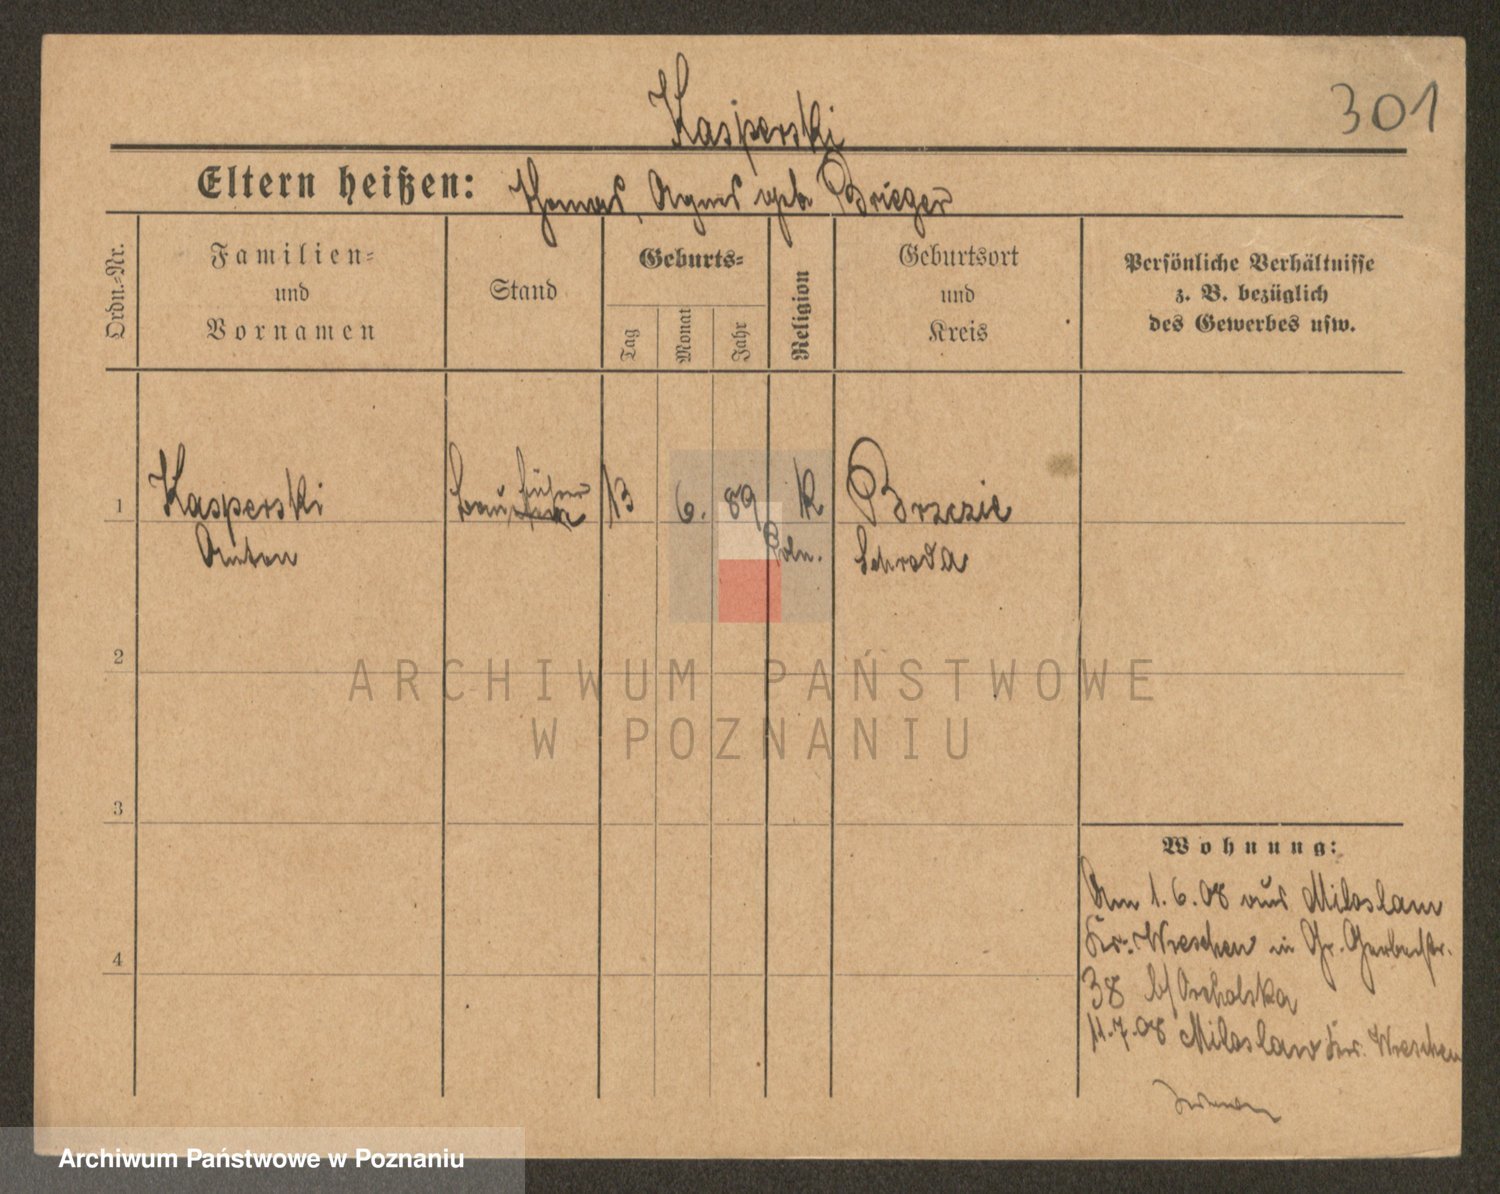 Kasperski
301
Eltern heißen: Thomas, Agnes geb. Brieger
Ordn.-Nr.
Familien-
und
Vornamen
Stand
Geburts-
Tag
Monat
Jahr
Religion
Geburtsort
und
Kreis
Persönliche Verhältnisse
z. B. bezüglich
des Gewerbes usw.
1
Kasperski
Anton
13
6.
89
K
Poln.
Brzezie
Schroda
2
3
4
Wohnung:
Am 1.6.08 aus Miloslaw
Kr. Wreschen in Gr. Gerberstr.
38 b/
11.7.08 Miloslaw Kr. Wreschen
ARCHIWUM PAŃSTWOWE
W POZNANIU
Archiwum Państwowe w Poznaniu